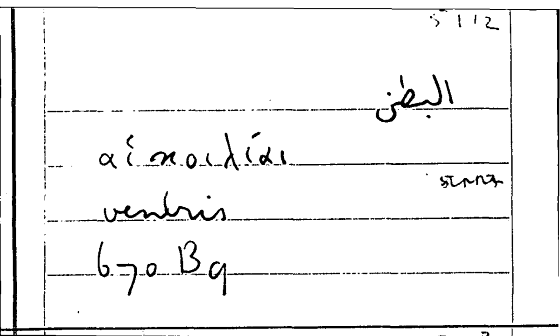 5112
البطن
αἱ κοιλίαι
ventris
670 B9